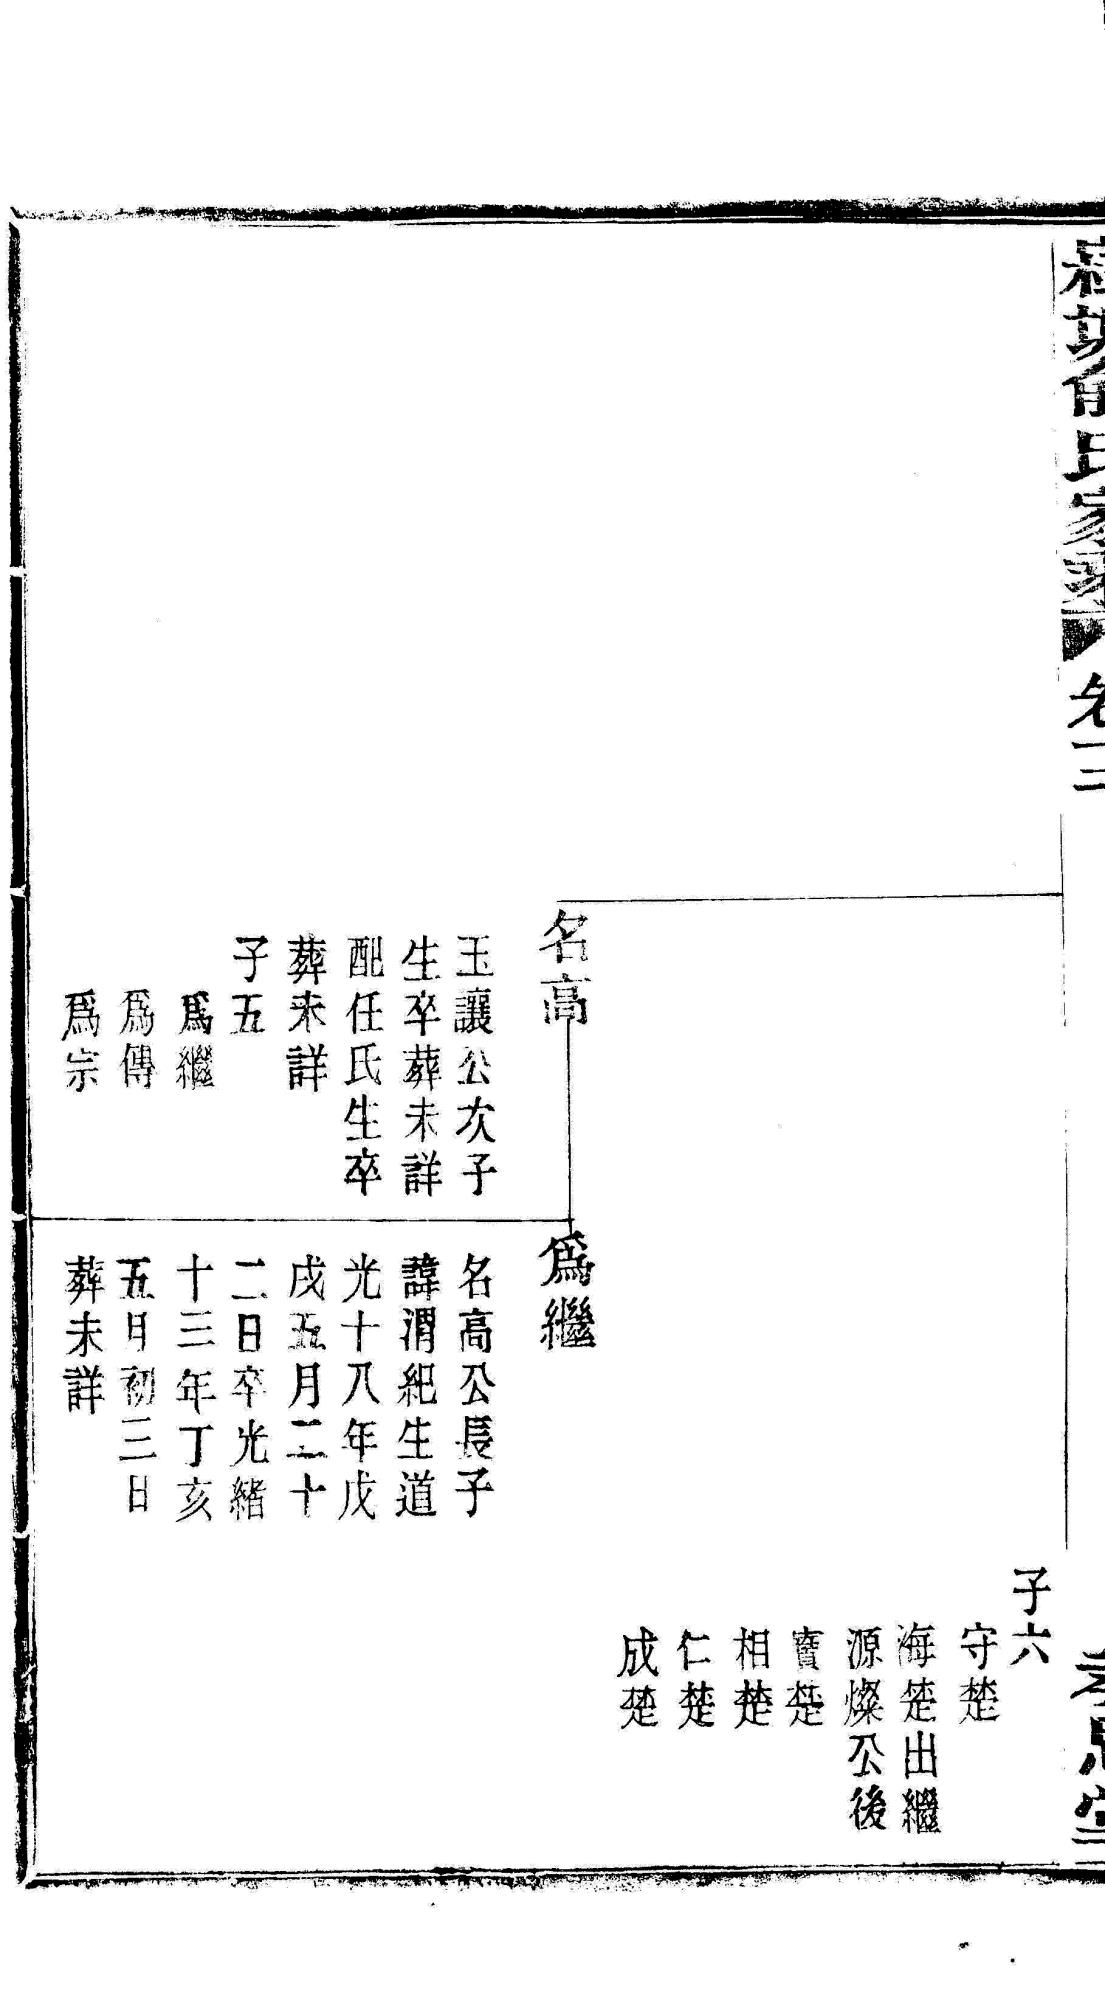 氏家
卷三
子六
守楚
海楚出繼
源燦公後
寶楚
相楚
仁楚
成楚
名高
玉讓公次子
生卒葬未詳
配任氏生卒
葬未詳
子五
爲繼
爲傳
爲宗
爲繼
名高公長子
諱渭紀生道
光十八年戊
戌五月二十
二日卒光緒
十三年丁亥
五月初三日
葬未詳
孝思堂